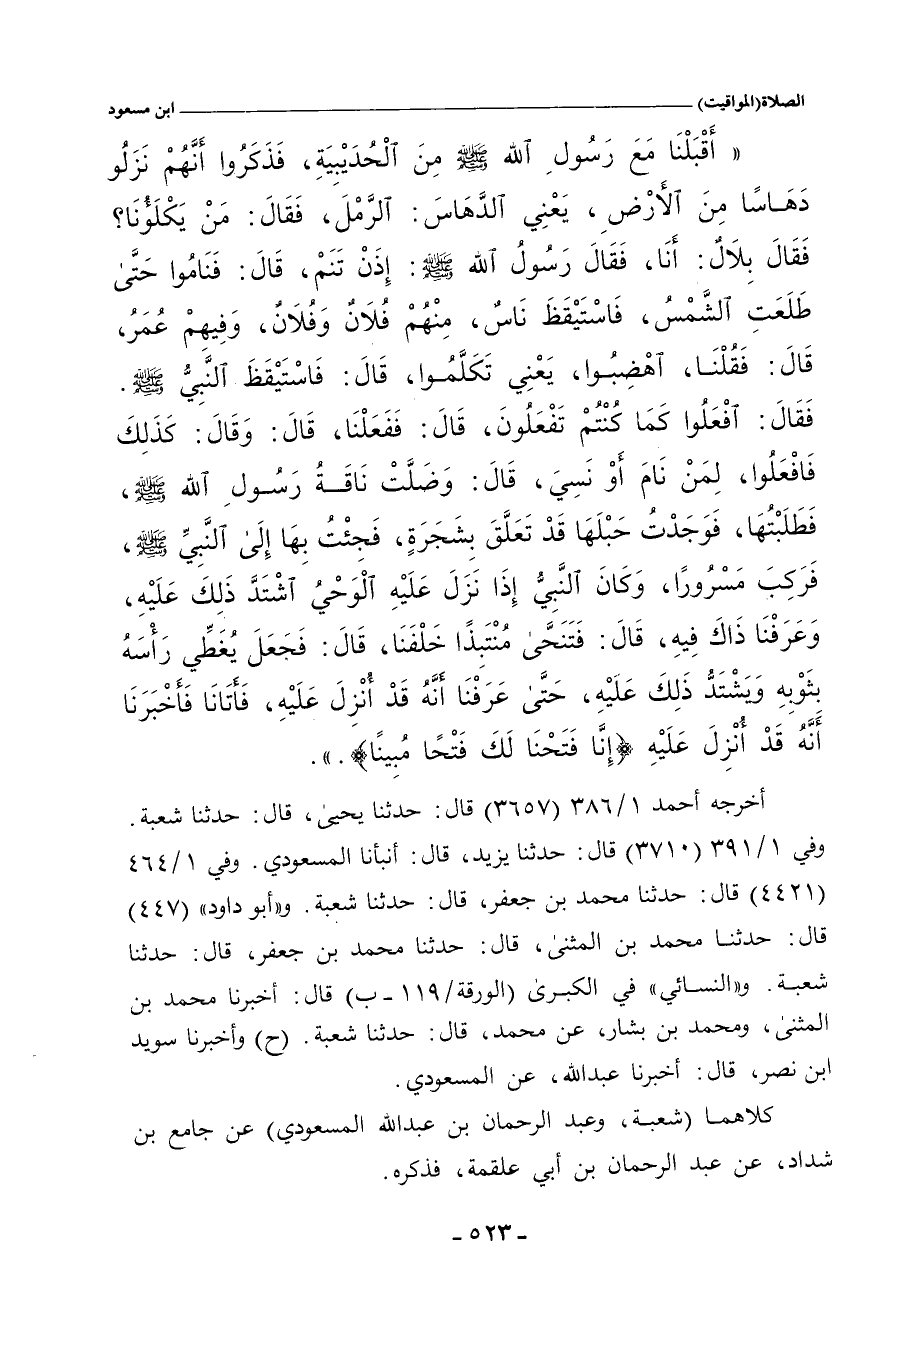 الصلاة(المواقيت) ـــــــــ ابن مسعود
« أَقْبَلْنَا مَعَ رَسُولِ ٱللهِ ﷺ مِنَ ٱلْحُدَيْبِيَةِ، فَذَكَرُوا أَنَّهُمْ نَزَلُو
دَهَاسًا مِنَ ٱلْأَرْضِ، يَعْنِي ٱلدَّهَاسَ: ٱلرَّمْلَ، فَقَالَ: مَنْ يَكْلَؤُنَا؟
فَقَالَ بِلَالٌ: أَنَا، فَقَالَ رَسُولُ ٱللهِ ﷺ: إِذَنْ تَنَمْ، قَالَ: فَنَامُوا حَتَّىٰ
طَلَعَتِ ٱلشَّمْسُ، فَاسْتَيْقَظَ نَاسٌ، مِنْهُمْ فُلَانٌ وَفُلَانٌ، وَفِيهِمْ عُمَرُ،
قَالَ: فَقُلْنَا، آهْضِبُوا، يَعْنِي تَكَلَّمُوا، قَالَ: فَاسْتَيْقَظَ ٱلنَّبِيُّ ﷺ.
فَقَالَ: ٱفْعَلُوا كَمَا كُنْتُمْ تَفْعَلُونَ، قَالَ: فَفَعَلْنَا، قَالَ: وَقَالَ: كَذَلِكَ
فَافْعَلُوا، لِمَنْ نَامَ أَوْ نَسِيَ، قَالَ: وَضَلَّتْ نَاقَةُ رَسُولِ ٱللهِ ﷺ،
فَطَلَبْتُهَا، فَوَجَدْتُ حَبْلَهَا قَدْ تَعَلَّقَ بِشَجَرَةٍ، فَجِئْتُ بِهَا إِلَىٰ ٱلنَّبِيِّ ﷺ،
فَرَكِبَ مَسْرُورًا، وَكَانَ ٱلنَّبِيُّ إِذَا نَزَلَ عَلَيْهِ ٱلْوَحْيُ ٱشْتَدَّ ذَلِكَ عَلَيْهِ،
وَعَرَفْنَا ذَاكَ فِيهِ، قَالَ: فَتَنَحَّىٰ مُنْتَبِذًا خَلْفَنَا، قَالَ: فَجَعَلَ يُغَطِّي رَأْسَهُ
بِثَوْبِهِ وَيَشْتَدُّ ذَلِكَ عَلَيْهِ، حَتَّىٰ عَرَفْنَا أَنَّهُ قَدْ أُنْزِلَ عَلَيْهِ، فَأَتَانَا فَأَخْبَرَنَا
أَنَّهُ قَدْ أُنْزِلَ عَلَيْهِ ﴿إِنَّا فَتَحْنَا لَكَ فَتْحًا مُبِينًا﴾.».
أخرجه أحمد ٣٨٦/١ (٣٦٥٧) قال: حدثنا يحيىٰ، قال: حدثنا شعبة.
وفي ٣٩١/١ (٣٧١٠) قال: حدثنا يزيد، قال: أنبأنا المسعودي. وفي ٤٦٤/١
(٤٤٢١) قال: حدثنا محمد بن جعفر، قال: حدثنا شعبة. و«أبو داود» (٤٤٧)
قال: حدثنا محمد بن المثنىٰ، قال: حدثنا محمد بن جعفر، قال: حدثنا
شعبة. و«النسائي» في الكبرىٰ (الورقة/١١٩ - ب) قال: أخبرنا محمد بن
المثنىٰ، ومحمد بن بشار، عن محمد، قال: حدثنا شعبة. (ح) وأخبرنا سويد
ابن نصر، قال: أخبرنا عبدالله، عن المسعودي.
كلاهما (شعبة، وعبد الرحمان بن عبدالله المسعودي) عن جامع بن
شداد، عن عبد الرحمان بن أبي علقمة، فذكره.
- ٥٢٣ -